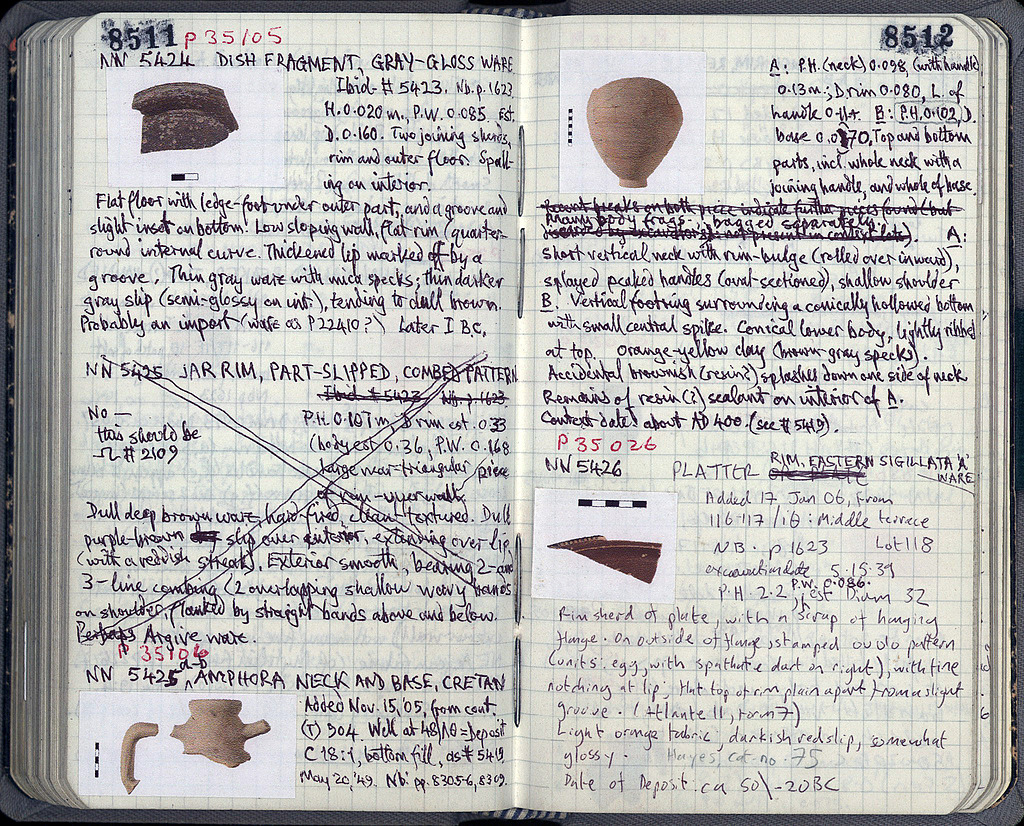 8511 P 35105
NN 5424 DISH FRAGMENT, GRAY-GLOSS WARE
Ibid. # 5423. Nb. p. 1623
H. 0.020 m., P.W. 0.085. Est.
D. 0.160. Two joining sherds,
rim and outer floor. Spall-
ing on interior.
Flat floor with ledge-foot under outer part, and a groove and
slight inset on bottom. Low sloping wall, flat rim (quarter-
round internal curve. Thickened lip marked off by a
groove. Thin gray ware with mica specks; thin darker
gray slip (semi-glossy on int.), tending to dull brown.
Probably an import (ware as P22410?) Later I B.C.
NN 5425 JAR RIM, PART-SLIPPED, COMBED PATTERN
Ibid # 5423 Nb. p. 1623
No —
this should be
# 2109
P.H. 0.107 m. D rim est. 0.33
(body est 0.36, P.W. 0.168
large near-triangular piece
of rim-upper wall.
Dull deep brown ware hard-fired, clean textured. Dull
purple-brown slip over exterior, extending over lip
(with a reddish streak). Exterior smooth, bearing 2- and
3-line combing (2 overlapping shallow wavy bands
on shoulder, flanked by straight bands above and below.
Perhaps Argive ware.
P 35106
NN 5425 a-b AMPHORA NECK AND BASE, CRETAN
Added Nov. 15, 05, from cont.
(T) 304. Well at 48/ΛΘ = Deposit
C 18:1, bottom fill, as # 5419.
May 20, '49. Nb: pp. 8305-6, 8309.
8512
A: P.H. (neck) 0.098, (with handle)
0.13 m; D rim 0.080, L. of
handle 0.114. B: P.H. 0.102, D.
base 0.070, Top and bottom
parts, incl. whole neck with a
joining handle, and whole of base.
Recent breaks on both piece indicate further pieces found (but
Many body frags. bagged separately.
A:
Short vertical neck with rim-bulge (rolled over inward),
splayed peaked handles (oval-sectioned), shallow shoulder
B. Vertical footring surrounding a conically hollowed bottom
with small central spike. Conical lower body, lightly ribbed
at top. orange-yellow clay (brown-gray specks).
Accidental brownish (resin?) splashes down one side of neck
Remains of resin(?) sealant on interior of A.
Context date: about AD 400. (see # 5419).
P 35026
NN 5426 PLATTER RIM, EASTERN SIGILLATA 'A'
WARE
Added 17 Jan 06, from
116-117/ΙΘ: Middle terrace
NB. p. 1623 Lot 118
excavation date 5.15.39
P.W. 0.086.
P.H. 2.2 est. Diam 32
Rim sherd of plate, with a scrap of hanging
flange. On outside of flange stamped ovolo pattern
(units: egg, with spathate dart on right), with fine
notching at lip; flat top of rim plain apart from a slight
groove. (Atlante II, form 7)
Light orange fabric, darkish red slip, somewhat
glossy. Hayes, cat. no. 75
Date of Deposit: ca 50 - 20 BC